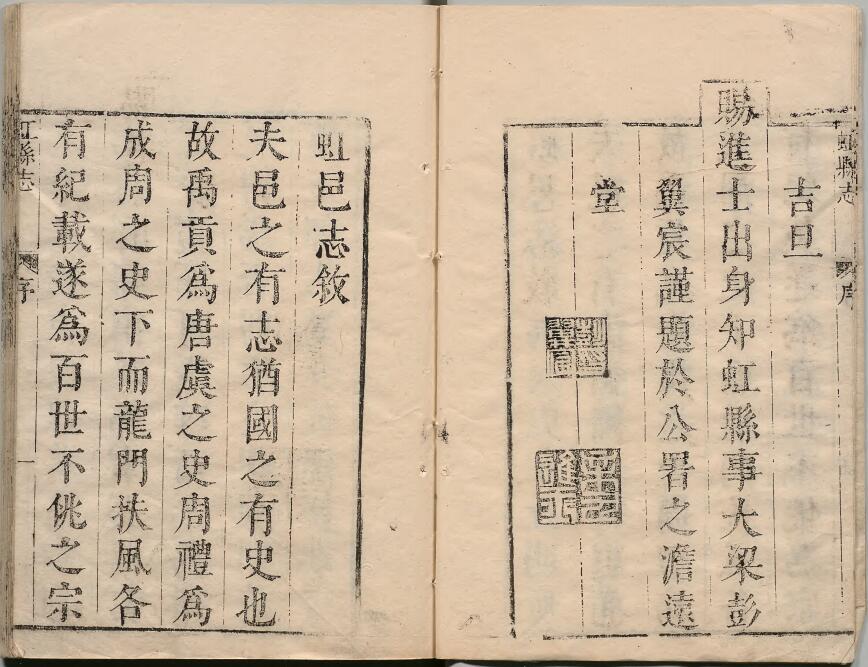 虹縣志
序
吉旦
賜進士出身知虹縣事大梁彭
翼宸謹題於公署之澹遠
堂
虹邑志敘
夫邑之有志猶國之有史也
故禹貢爲唐虞之史周禮爲
成周之史下而龍門扶風各
有紀載遂爲百世不佻之宗
虹縣志
序
一